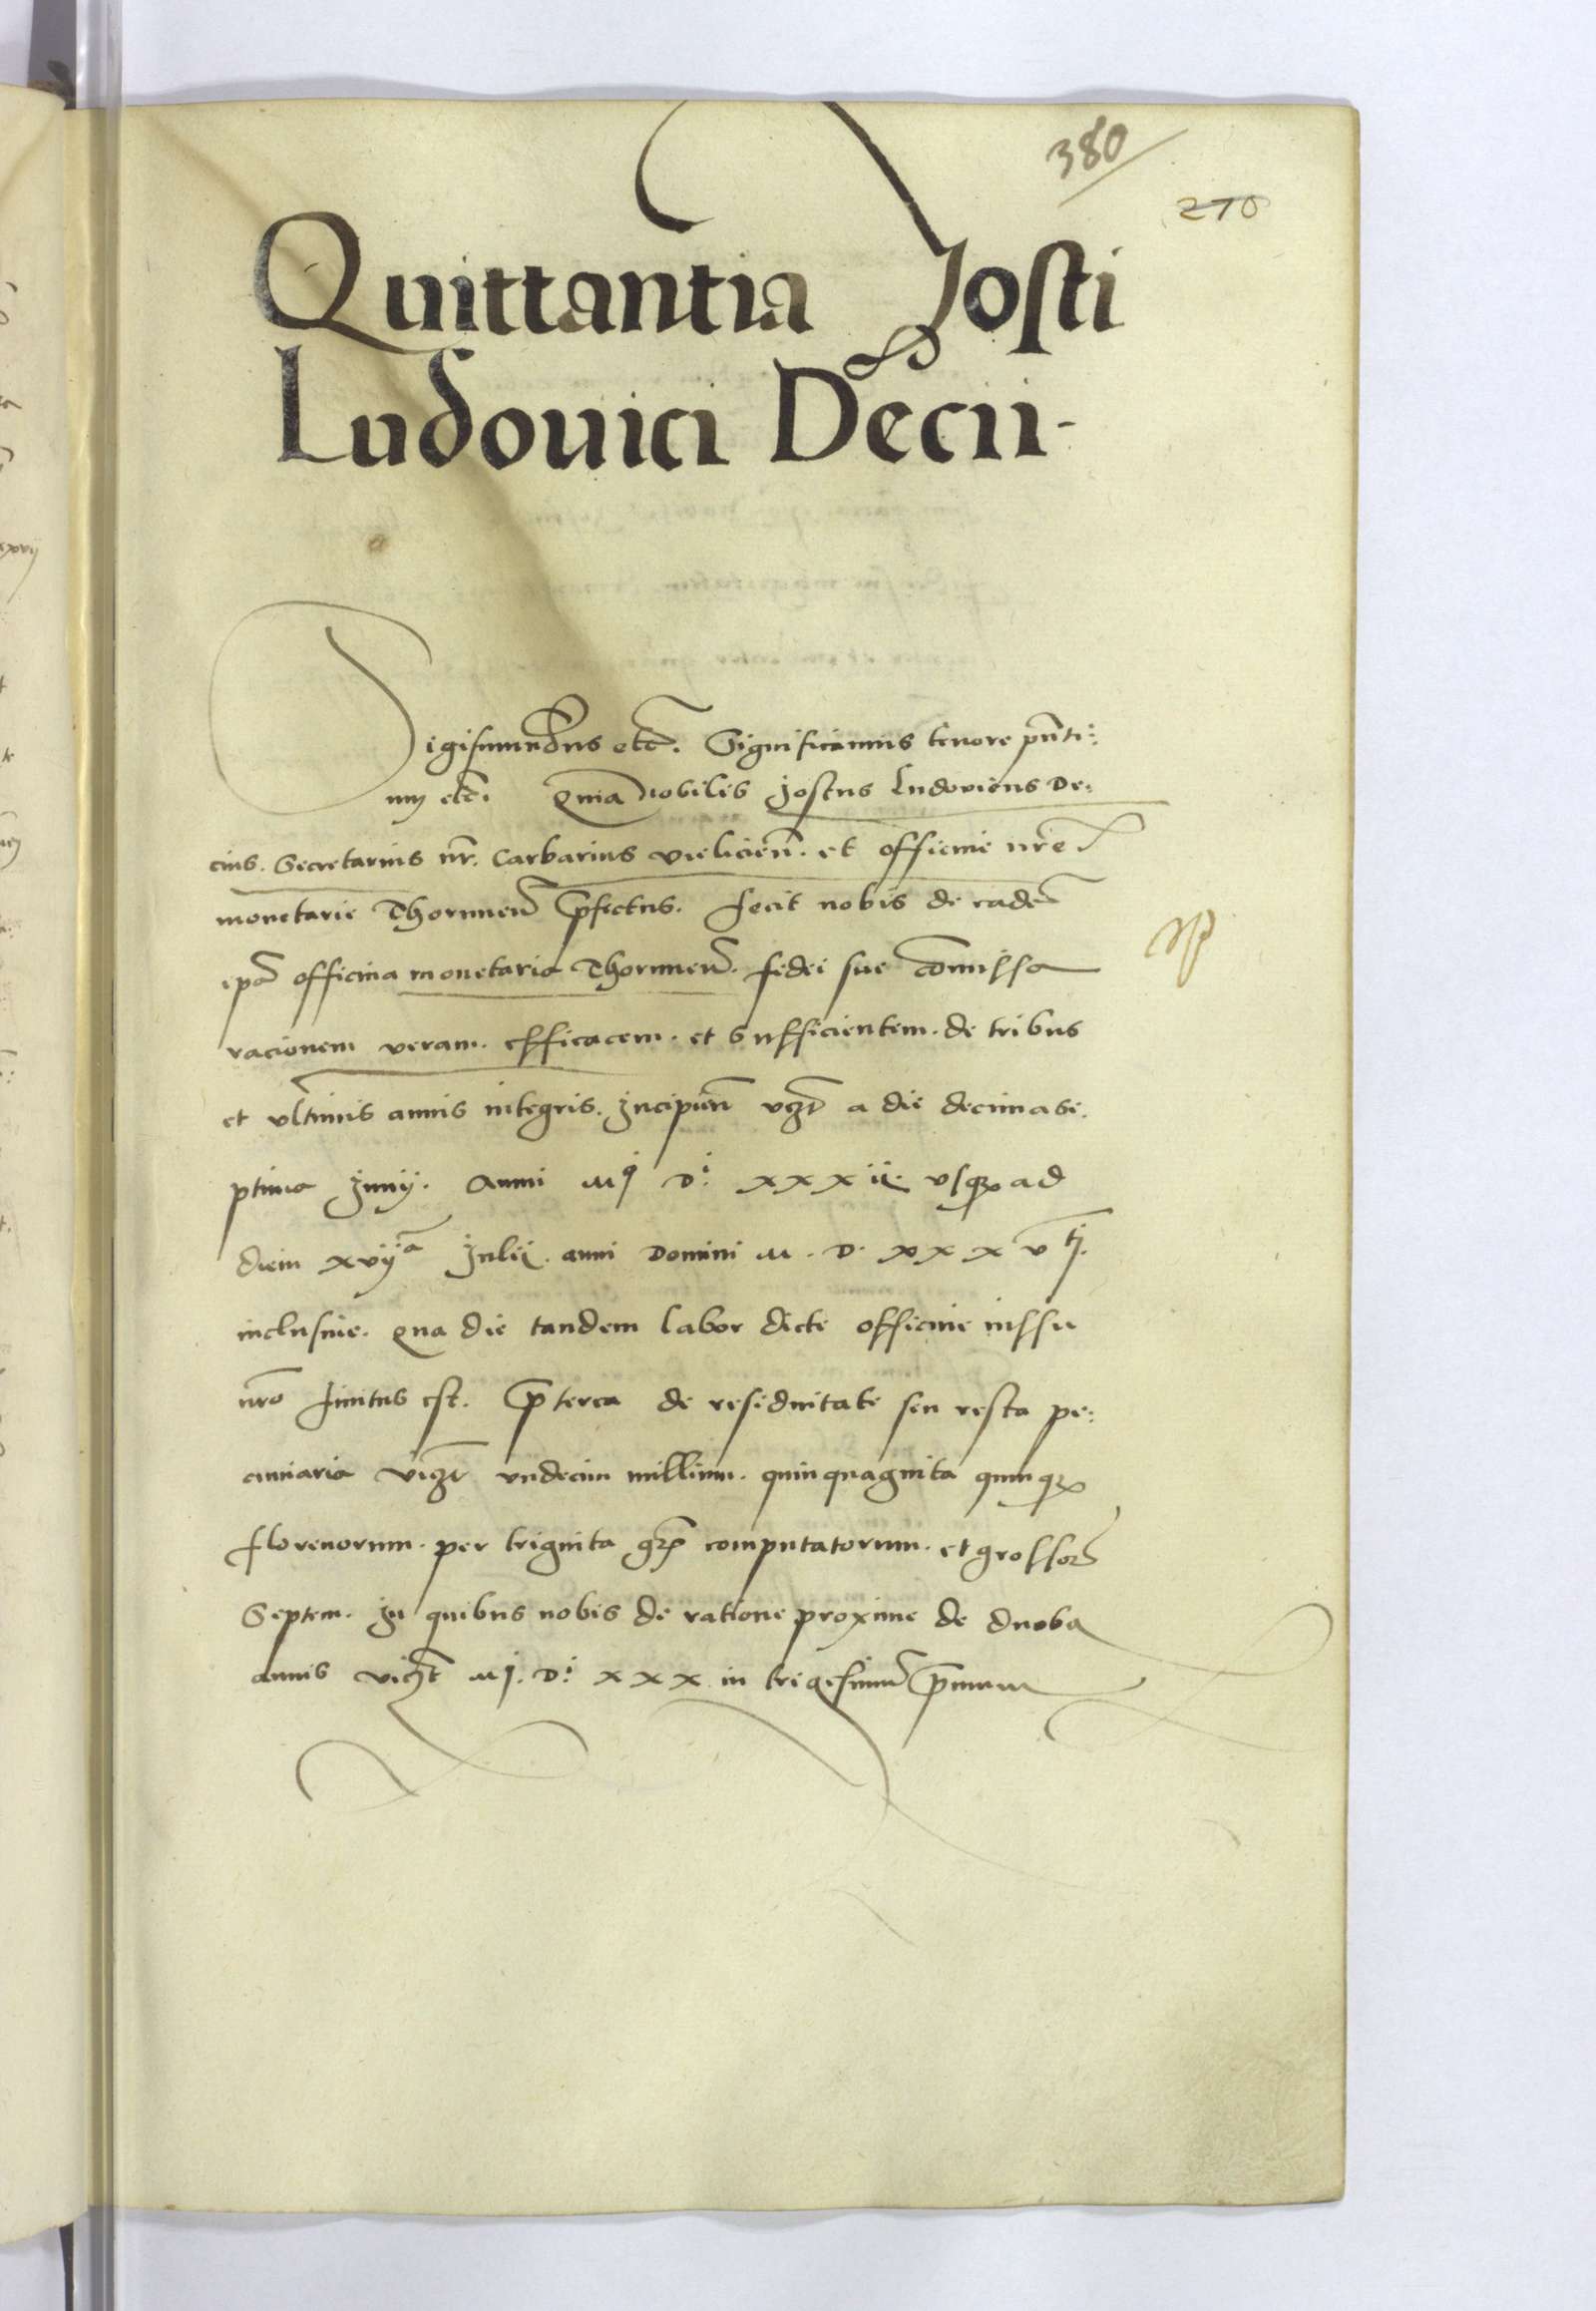 380
210
Quittantia Josti
Ludouici Decii-
Sigismundus etc. Significamus tenore pnti:
um etc. Quia nobilis Jostus Ludovicus De:
cius. Secretarius nr. Carbarius vielicien. et officine nre
monetarie Thorunen prefectus. fecit nobis de eadem
ipsa officina monetaria Thorunen. fidei sue comissa
racionem veram. efficacem. et sufficientem. de tribus
et vltimis annis integris. Incipien vczt a die decimase.
ptima Junij. Anni Mi Di xxxii. vsque ad
diem xvija Julii. anni Domini M. D. xxx vti.
inclusiue. qua die tandem labor dicte officine iussu
nro finitus est. preterea de residuitate seu resta pe:
cuniaria viczt vndecim millium. quinquaginta quinque
florenorum. per triginta grx computatorum. et grossor
Septem. In quibus nobis de ratione proxime de duobus
annis viczt Mi. Di xxx in trigesimum primum